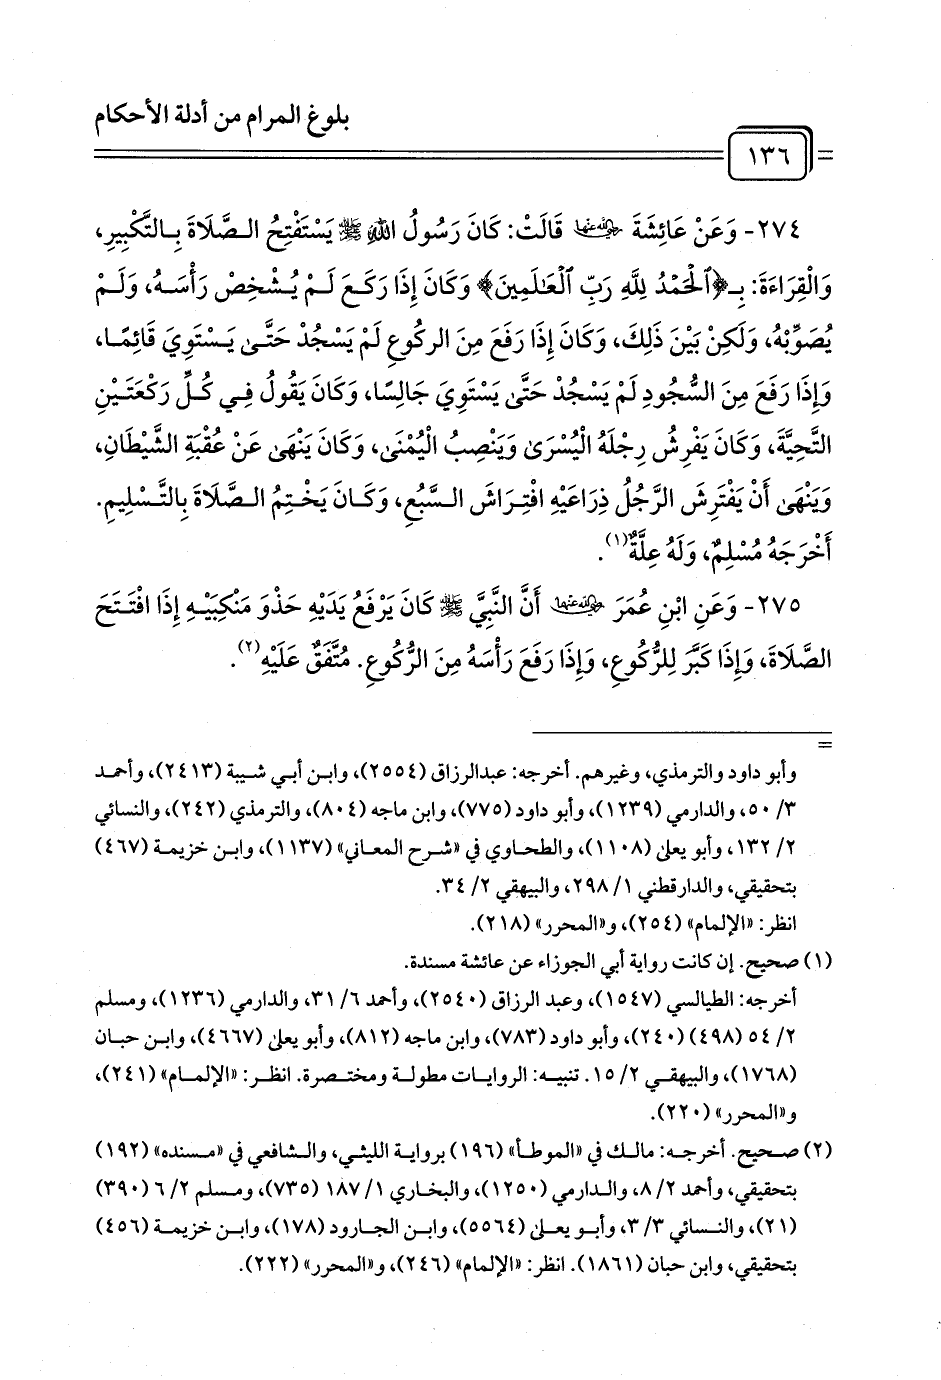 بلوغ المرام من أدلة الأحكام
١٣٦
٢٧٤- وَعَنْ عَائِشَةَ رضي الله عنها قَالَتْ: كَانَ رَسُولُ اللهِ ﷺ يَسْتَفْتِحُ الصَّلَاةَ بِالتَّكْبِيرِ،
وَالْقِرَاءَةَ: بِـ﴿ٱلْحَمْدُ لِلَّهِ رَبِّ ٱلْعَـٰلَمِينَ﴾ وَكَانَ إِذَا رَكَعَ لَمْ يُشْخِصْ رَأْسَهُ، وَلَمْ
يُصَوِّبْهُ، وَلَكِنْ بَيْنَ ذَلِكَ، وَكَانَ إِذَا رَفَعَ مِنَ الرُكُوعِ لَمْ يَسْجُدْ حَتَّى يَسْتَوِيَ قَائِمًا،
وَإِذَا رَفَعَ مِنَ السُّجُودِ لَمْ يَسْجُدْ حَتَّى يَسْتَوِيَ جَالِسًا، وَكَانَ يَقُولُ فِي كُلِّ رَكْعَتَيْنِ
التَّحِيَّةَ، وَكَانَ يَفْرِشُ رِجْلَهُ الْيُسْرَى وَيَنْصِبُ الْيُمْنَى، وَكَانَ يَنْهَى عَنْ عُقْبَةِ الشَّيْطَانِ،
وَيَنْهَى أَنْ يَفْتَرِشَ الرَّجُلُ ذِرَاعَيْهِ افْتِرَاشَ السَّبُعِ، وَكَانَ يَخْتِمُ الصَّلَاةَ بِالتَّسْلِيمِ.
أَخْرَجَهُ مُسْلِمٌ، وَلَهُ عِلَّةٌ(١).
٢٧٥- وَعَنِ ابْنِ عُمَرَ رضي الله عنهما أَنَّ النَّبِيَّ ﷺ كَانَ يَرْفَعُ يَدَيْهِ حَذْوَ مَنْكِبَيْهِ إِذَا افْتَتَحَ
الصَّلَاةَ، وَإِذَا كَبَّرَ لِلرُّكُوعِ، وَإِذَا رَفَعَ رَأْسَهُ مِنَ الرُّكُوعِ. مُتَّفَقٌ عَلَيْهِ(٢).
=
وأبو داود والترمذي، وغيرهم. أخرجه: عبدالرزاق (٢٥٥٤)، وابن أبي شيبة (٢٤١٣)، وأحمد
٣/ ٥٠، والدارمي (١٢٣٩)، وأبو داود (٧٧٥)، وابن ماجه (٨٠٤)، والترمذي (٢٤٢)، والنسائي
٢/ ١٣٢، وأبو يعلى (١١٠٨)، والطحاوي في «شرح المعاني» (١١٣٧)، وابن خزيمة (٤٦٧)
بتحقيقي، والدارقطني ١/ ٢٩٨، والبيهقي ٢/ ٣٤.
انظر: «الإلمام» (٢٥٤)، و«المحرر» (٢١٨).
(١) صحيح. إن كانت رواية أبي الجوزاء عن عائشة مسندة.
أخرجه: الطيالسي (١٥٤٧)، وعبد الرزاق (٢٥٤٠)، وأحمد ٦/ ٣١، والدارمي (١٢٣٦)، ومسلم
٢/ ٥٤ (٤٩٨) (٢٤٠)، وأبو داود (٧٨٣)، وابن ماجه (٨١٢)، وأبو يعلى (٤٦٦٧)، وابن حبان
(١٧٦٨)، والبيهقي ٢/ ١٥. تنبيه: الروايات مطولة ومختصرة. انظر: «الإلمام» (٢٤١)،
و«المحرر» (٢٢٠).
(٢) صحيح. أخرجه: مالك في «الموطأ» (١٩٦) برواية الليثي، والشافعي في «مسنده» (١٩٢)
بتحقيقي، وأحمد ٢/ ٨، والدارمي (١٢٥٠)، والبخاري ١/ ١٨٧ (٧٣٥)، ومسلم ٢/ ٦ (٣٩٠)
(٢١)، والنسائي ٣/ ٣، وأبو يعلى (٥٥٦٤)، وابن الجارود (١٧٨)، وابن خزيمة (٤٥٦)
بتحقيقي، وابن حبان (١٨٦١). انظر: «الإلمام» (٢٤٦)، و«المحرر» (٢٢٢).